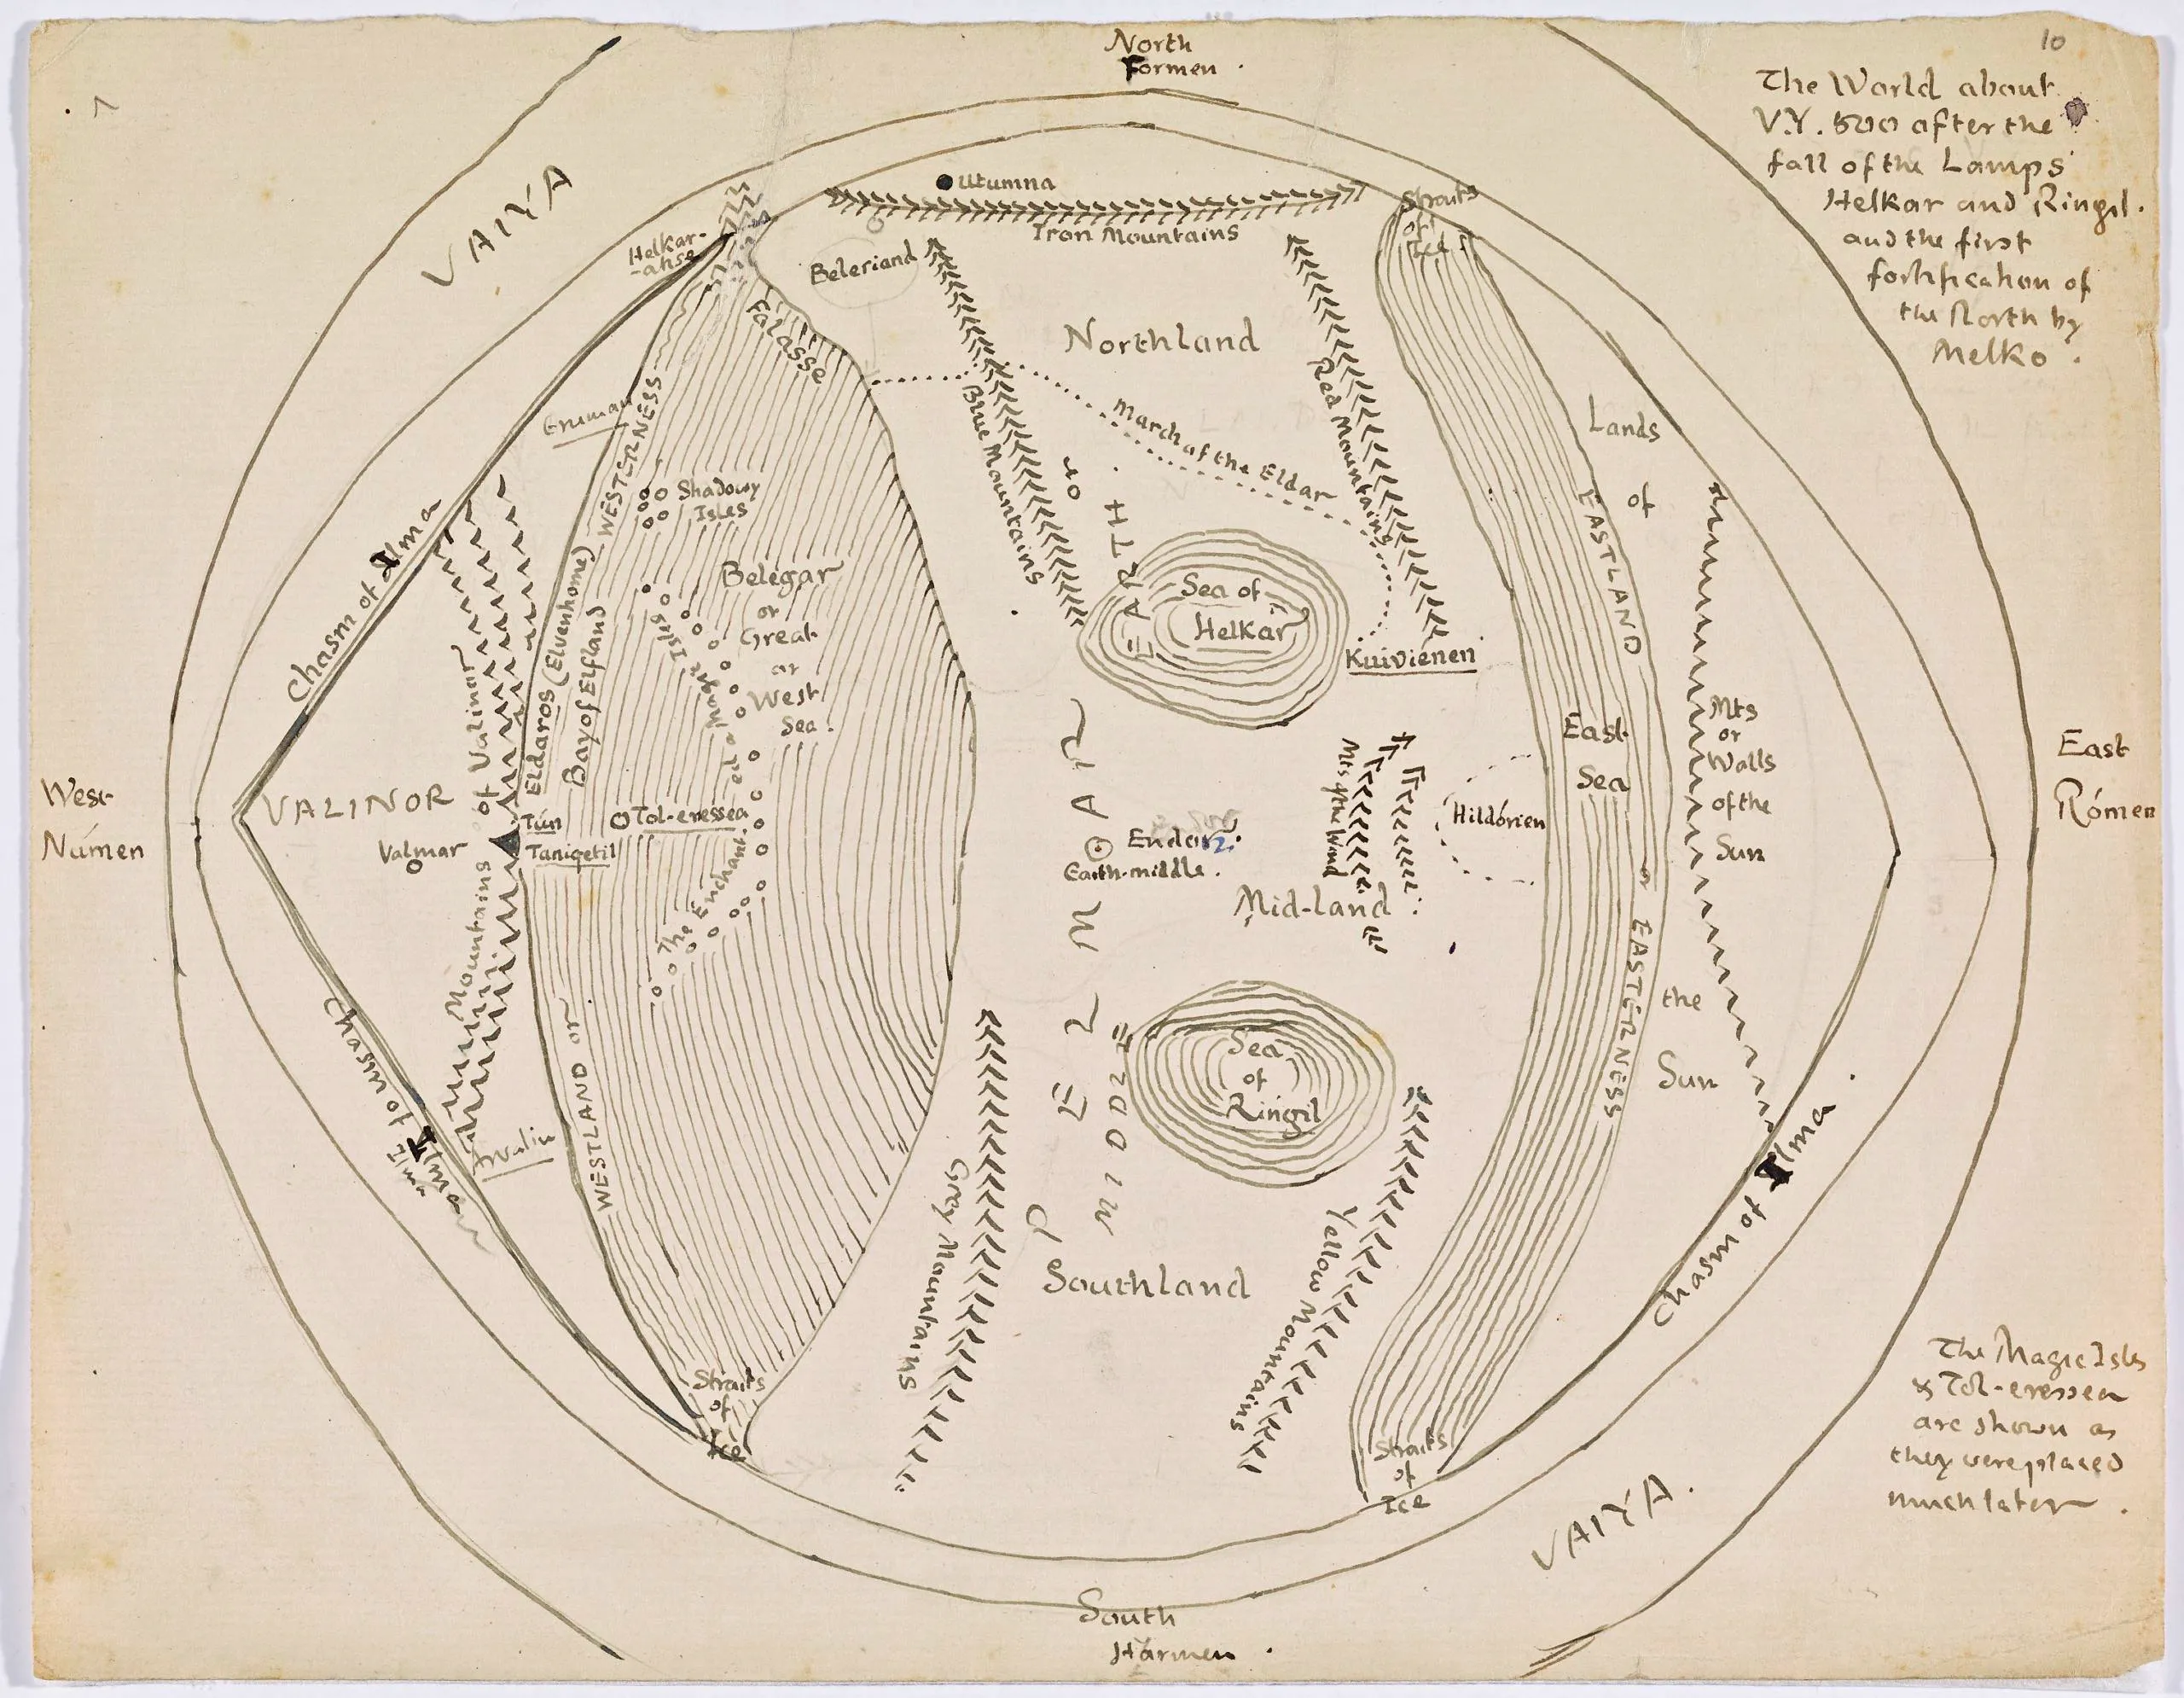 North
Formen .
10
The World about
V.Y. 500 after the
fall of the Lamps
Helkar and Ringil.
and the first
fortification of
the North by
Melko .
VAIYA
Utumna
Iron Mountains
Straits
of
Ice
Helkar-
-akse
Beleriand
Falasse
Northland
Eruman
WESTERNESS
Blue Mountains
March of the Eldar
Red Mountains
Lands
of
the
Sun
EASTLAND
or EASTERNESS
Shadowy
Isles
Chasm of Ilma
Belegar
or
Great
or
West
Sea .
Sea of
Helkar
Kuiviénen
Mountains of Valinor
Eldaros (Elvenhome)
Bay of Elfland
The Enchanted or Magic Isles
PELMAR
or
MIDDLE
EARTH .
Mts
or
Walls
of the
Sun
East
Sea
East
Rómen
West
Númen
VALINOR
Valmar
Tún
Taniqetil
Tol-eressëa
Endor
Earth-middle .
Mts of the Wind
Hildórien
Mid-land
Sea
of
Ringil
Chasm of Ilma
Ilma
Avalin
WESTLAND or
Grey Mountains
Yellow Mountains
Southland
Chasm of Ilma
Straits
of
Ice
Straits
of
Ice
The Magic Isles
& Tol-eressëa
are shown as
they were placed
much later .
VAIYA .
South
Harmen .